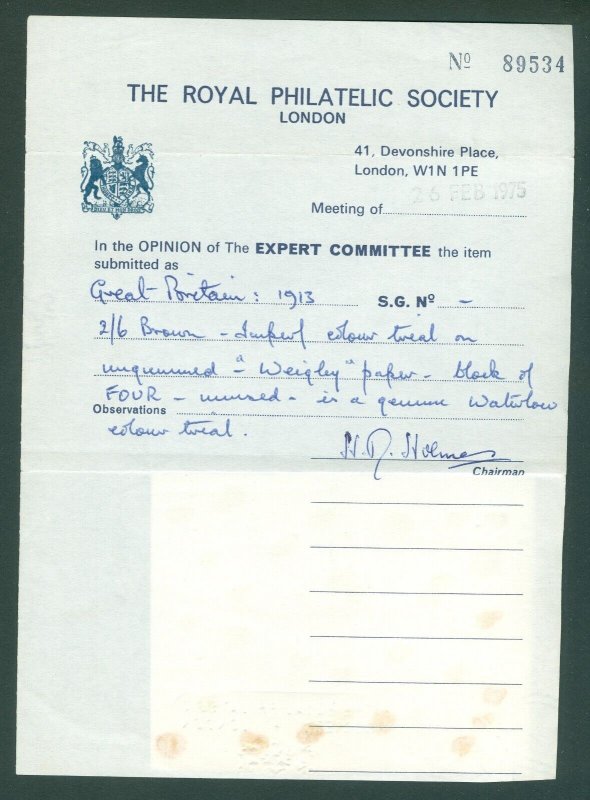 Nº 89534
THE ROYAL PHILATELIC SOCIETY
LONDON
41, Devonshire Place,
London, W1N 1PE
Meeting of 26 FEB 1975
In the OPINION of The EXPERT COMMITTEE the item
submitted as
Great Britain: 1913 S.G. Nº –
2/6 Brown – Imperf colour trial on
ungummed – "Weigley" paper – block of
FOUR – unused – is a genuine Waterlow
Observations
colour trial.
H. R. Holmes
Chairman